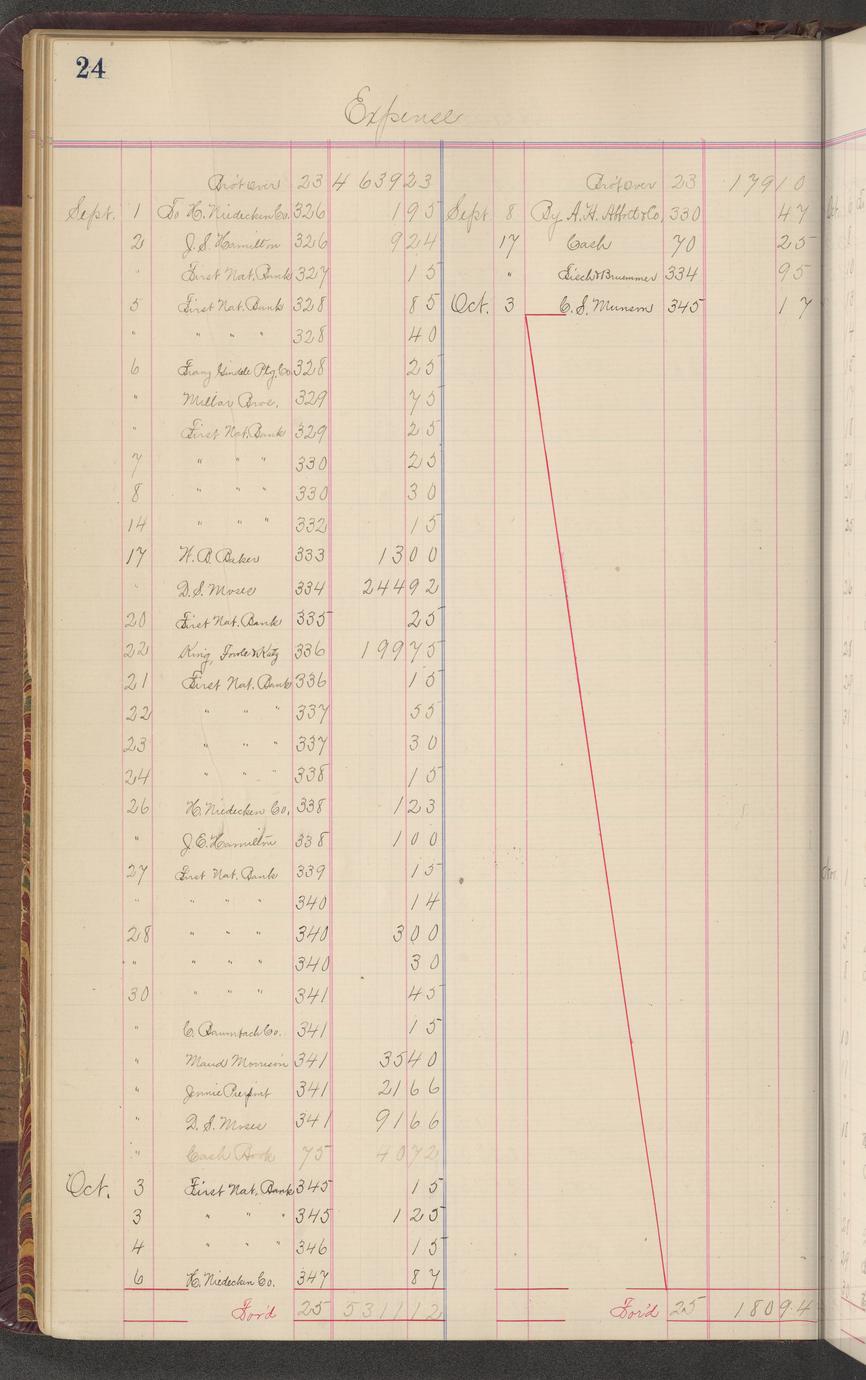 24
Expense
Bro't over 23 4 639 23
Sept. 1 To H. Niedecken Co. 326 1 95
2 J. S. Hamilton 326 9 24
" First Nat. Bank 327 15
5 First Nat. Bank 328 85
" " " " 328 40
6 Franz Gindele Ptg. Co. 328 25
" Millar Bros. 329 75
" First Nat. Bank 329 25
7 " " " 330 25
8 " " " 330 30
14 " " " 332 15
17 H. B. Baker 333 13 00
" D. S. Moses 334 244 92
20 First Nat. Bank 335 25
22 King, Fowle & Katz 336 199 75
21 First Nat. Bank 336 15
22 " " " 337 55
23 " " " 337 30
24 " " " 338 15
26 H. Niedecken Co. 338 1 23
" J. E. Hamilton 338 1 00
27 First Nat. Bank 339 15
" " " " 340 14
28 " " " 340 3 00
" " " " 340 30
30 " " " 341 45
" C. Baumbach Co. 341 15
" Maud Morrison 341 35 40
" Jennie Pierpont 341 21 66
" D. S. Moses 341 91 66
" Cash Book 75 40 72
Oct. 3 First Nat. Bank 345 15
3 " " " 345 1 25
4 " " " 346 15
6 H. Niedecken Co. 347 87
For'd 25 5 311 12
Bro't over 23 179 10
Sept 8 By A. H. Abbott & Co. 330 47
17 Cash 70 25
" Fisch & Bruemmer 334 95
Oct. 3 C. S. Munson 345 17
For'd 25 180 94